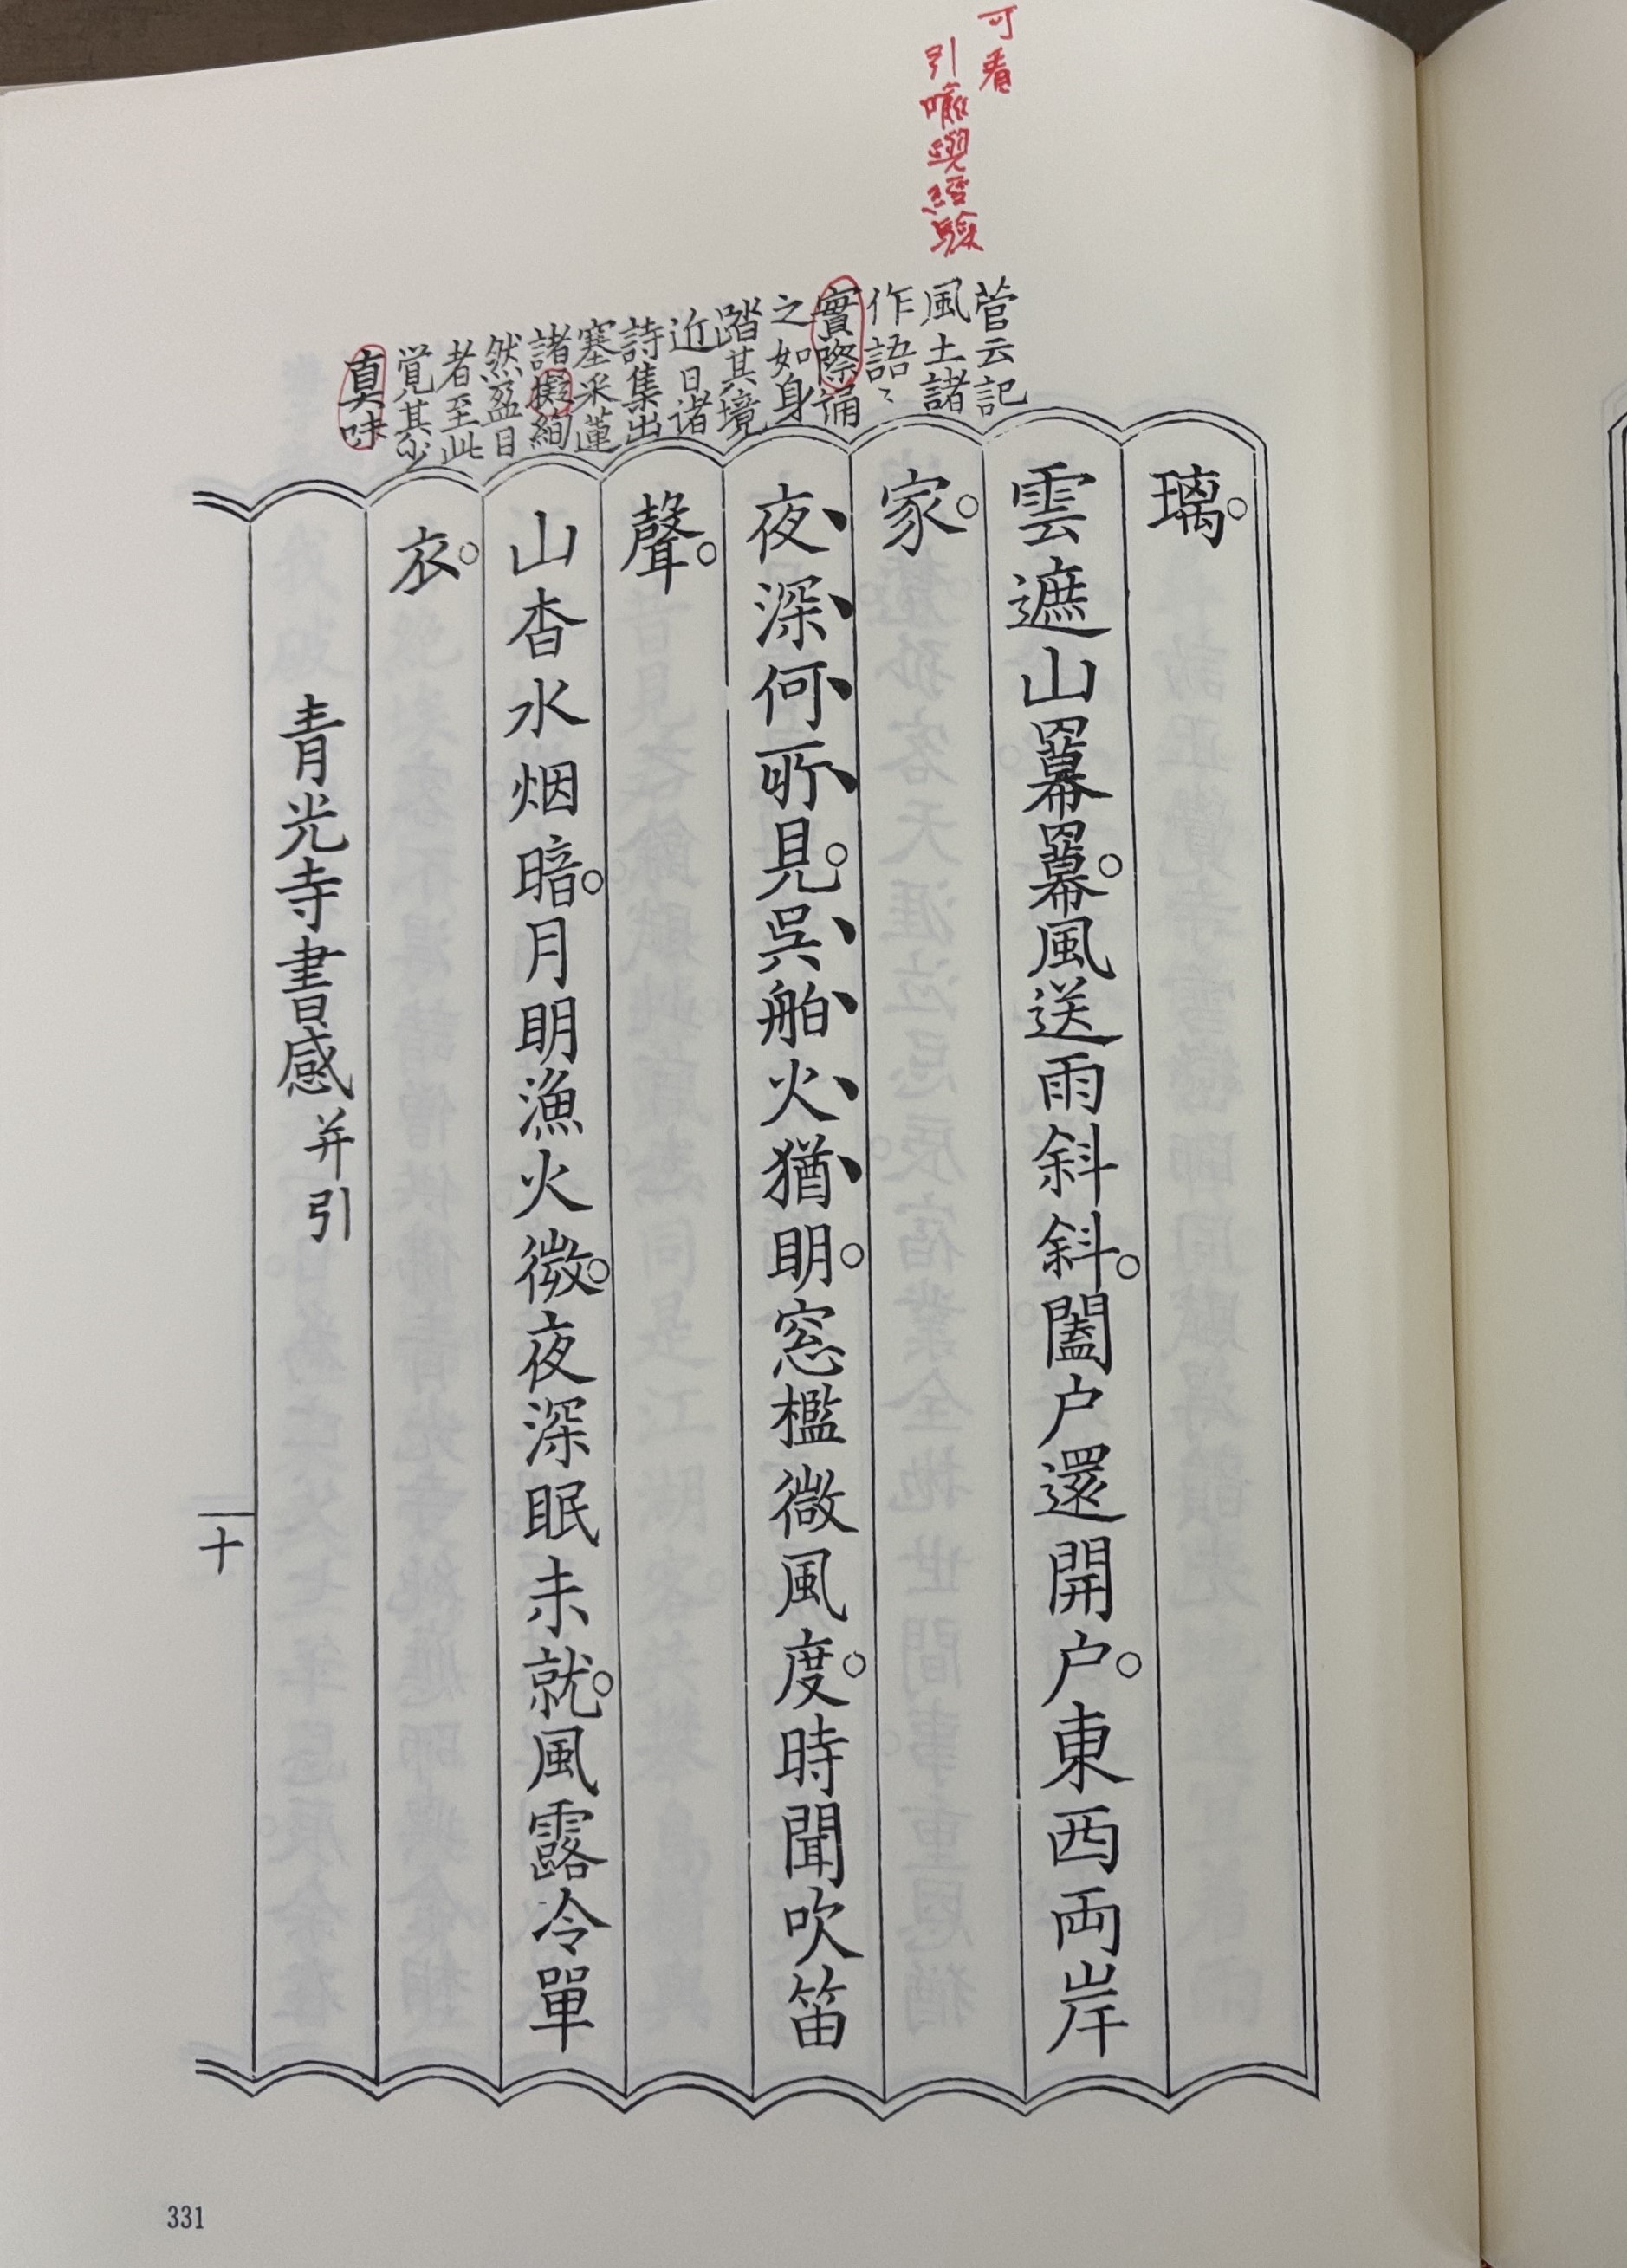 可看
引喩與經驗
菅云記
風土諸
作語〻
實際誦
之如身
踏其境
近日诸
詩集出
塞采蓮
諸擬絢
然盈目
者至此
覚其少
真味
璃。
雲遮山羃羃。風送雨斜斜。闔户還開户。東西両岸
家。
夜深何所見。呉舶火猶明。窓檻微風度。時聞吹笛
聲。
山杳水烟暗。月明漁火微。夜深眠未就。風露冷單
衣。
青光寺書感 并引
十
331